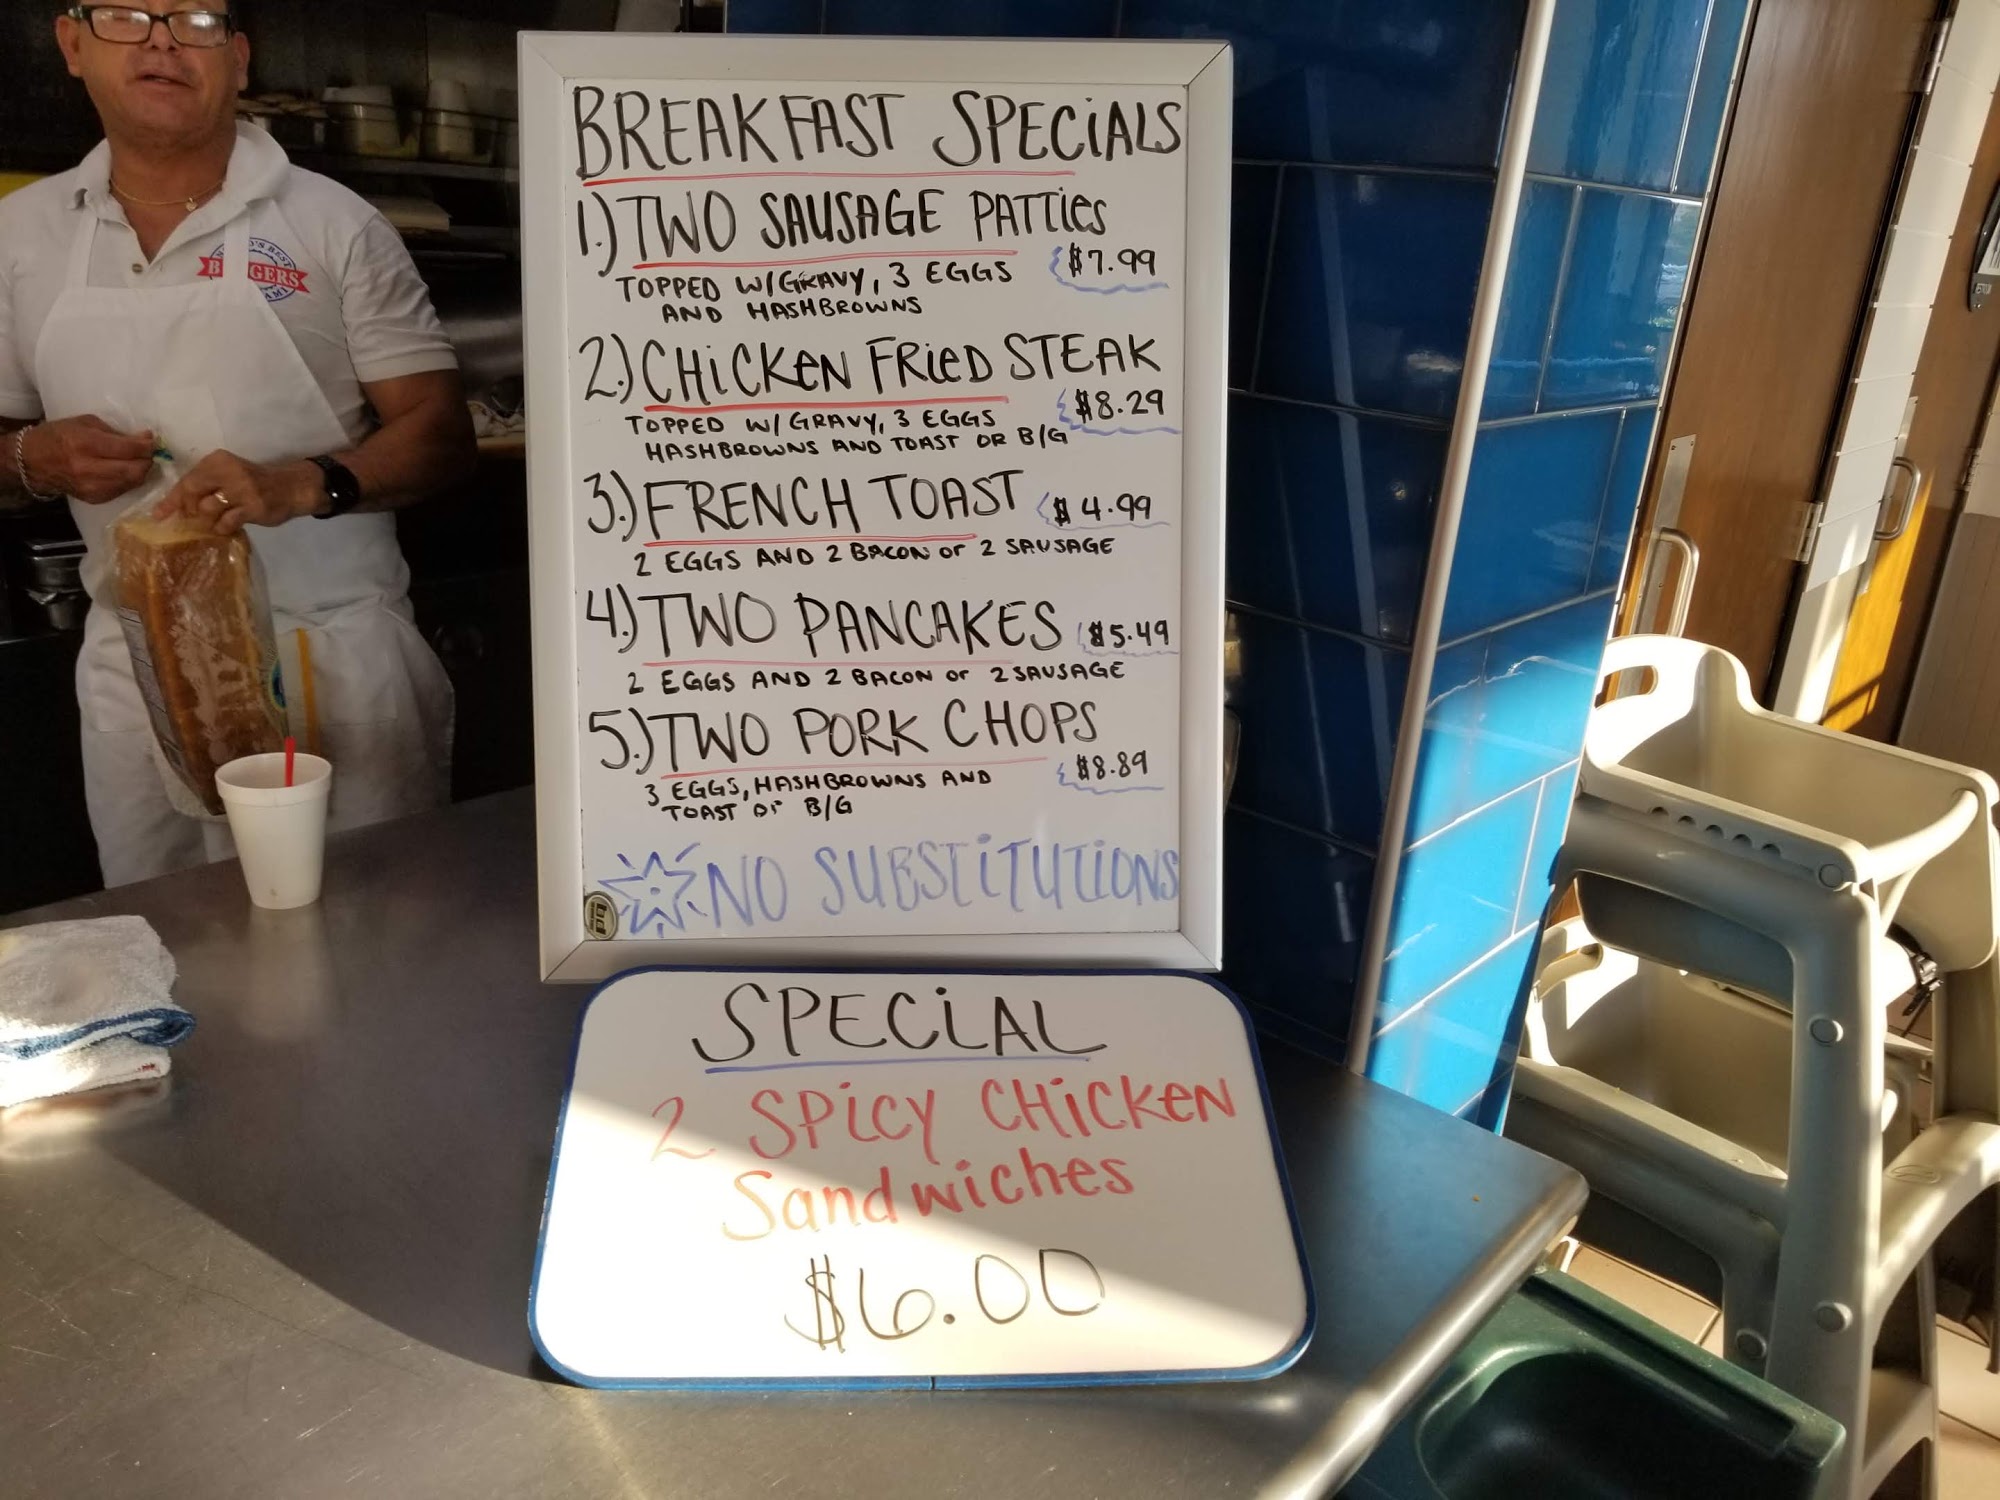 BREAKFAST SPECiALS
1.) TWO SAUSAGE PATTiES
$7.99
TOPPED W/GRAVY, 3 EGGS
AND HASHBROWNS
2.) CHiCKEN FRiED STEAK
$8.29
TOPPED W/ GRAVY, 3 EGGS
HASHBROWNS AND TOAST OR B/G
3.) FRENCH TOAST $4.99
2 EGGS AND 2 BACON or 2 SAUSAGE
4.) TWO PANCAKES $5.49
2 EGGS AND 2 BACON or 2 SAUSAGE
5.) TWO PORK CHOPS
$8.89
3 EGGS, HASHBROWNS AND
TOAST or B/G
NO SUBSTiTUTiONS
SPECiAL
2 SPiCY CHiCKEN
Sandwiches
$6.00